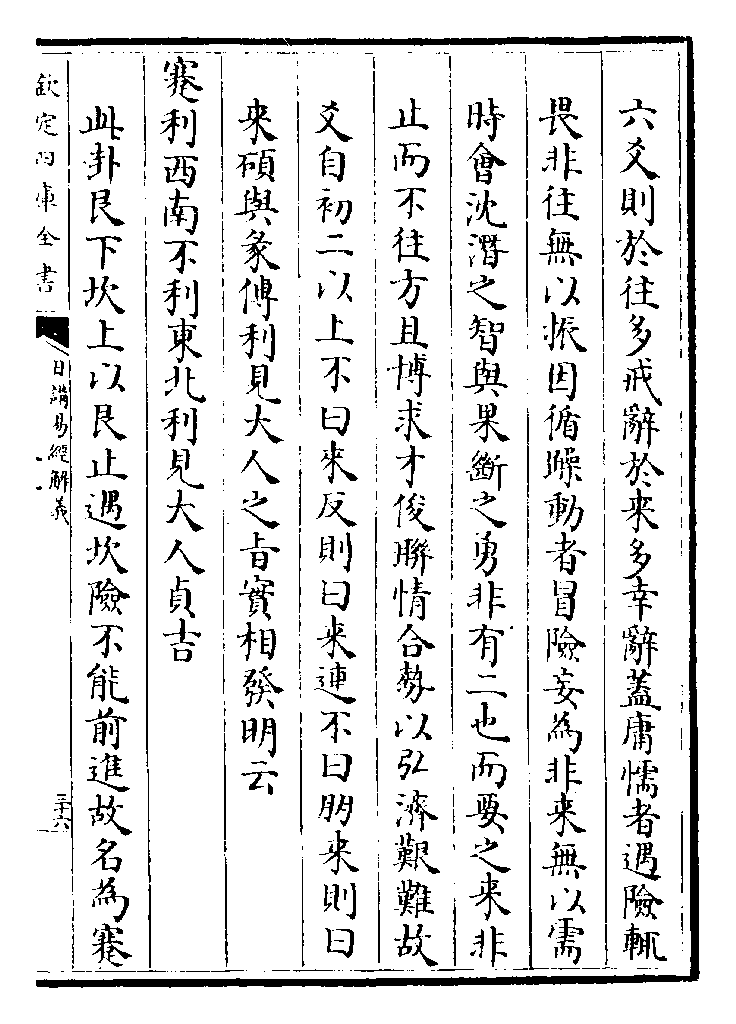 六爻則於往多戒辭於来多幸辭蓋庸懦者遇險輒
畏非往無以振因循躁動者冒險妄為非来無以需
時會沈潛之智與果斷之勇非有二也而要之来非
止而不往方且博求才俊聯情合勢以弘濟艱難故
爻自初二以上不曰来反則曰来連不曰朋来則曰
来碩與彖傳利見大人之旨實相發明云
蹇利西南不利東北利見大人貞吉
此卦艮下坎上以艮止遇坎險不能前進故名為蹇
欽定四庫全書
日講易經解義
三十六